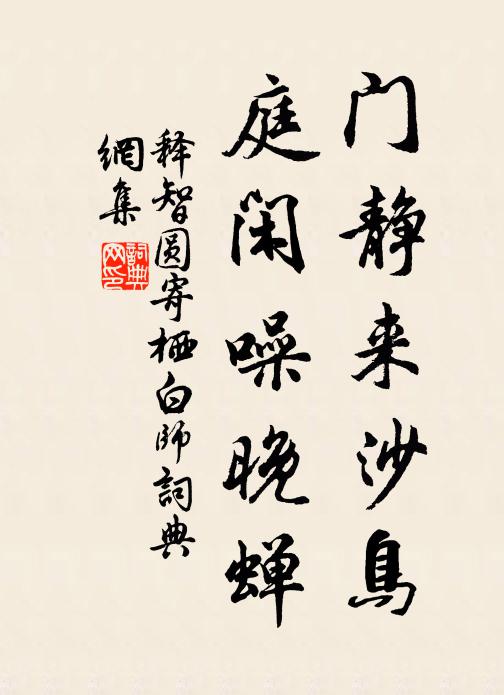 门静来沙鸟
庭闲噪晚蝉
释智圆寄栖白师詞典
網集
詞典网印